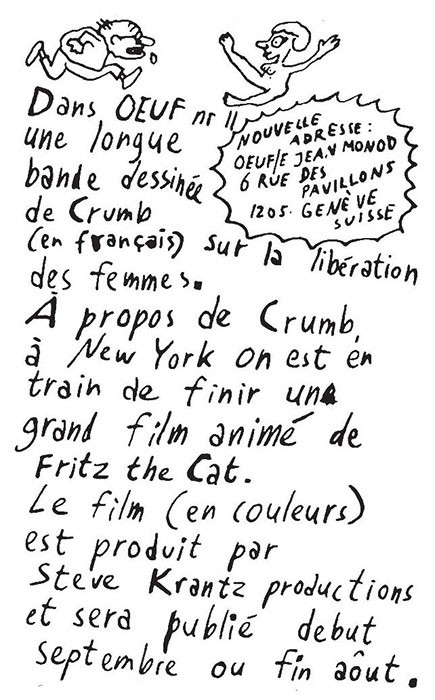 Dans OEUF nr 11
une longue
bande dessinée
de Crumb
(en français) sur la libération
des femmes.
NOUVELLE
ADRESSE:
OEUF/E JEAN MONOD
6 RUE DES
PAVILLONS
1205. GENÈVE
SUISSE
À propos de Crumb,
à New York on est en
train de finir un
grand film animé de
Fritz the Cat.
Le film (en couleurs)
est produit par
Steve Krantz productions
et sera publié debut
septembre ou fin aôut.